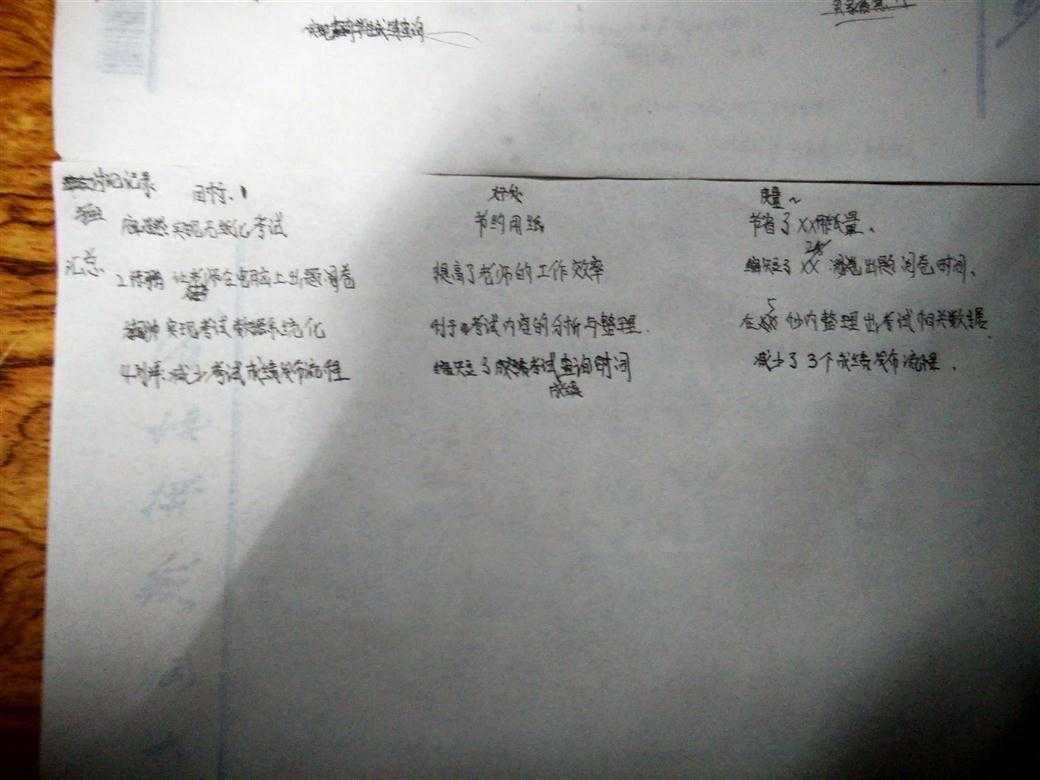 记录 目标 好处 度量
实现无纸化考试 节约用纸 节省了XX用纸量。
汇总 2. 让老师在电脑上出题阅卷 提高了老师的工作效率 缩短了XX 出题阅卷时间、
实现考试数据系统化 利于考试内容的分析与整理. 在5秒内整理出考试相关数据
4. 减少考试成绩发布流程 缩短了考试查询时间 减少了3个成绩发布流程.
成绩